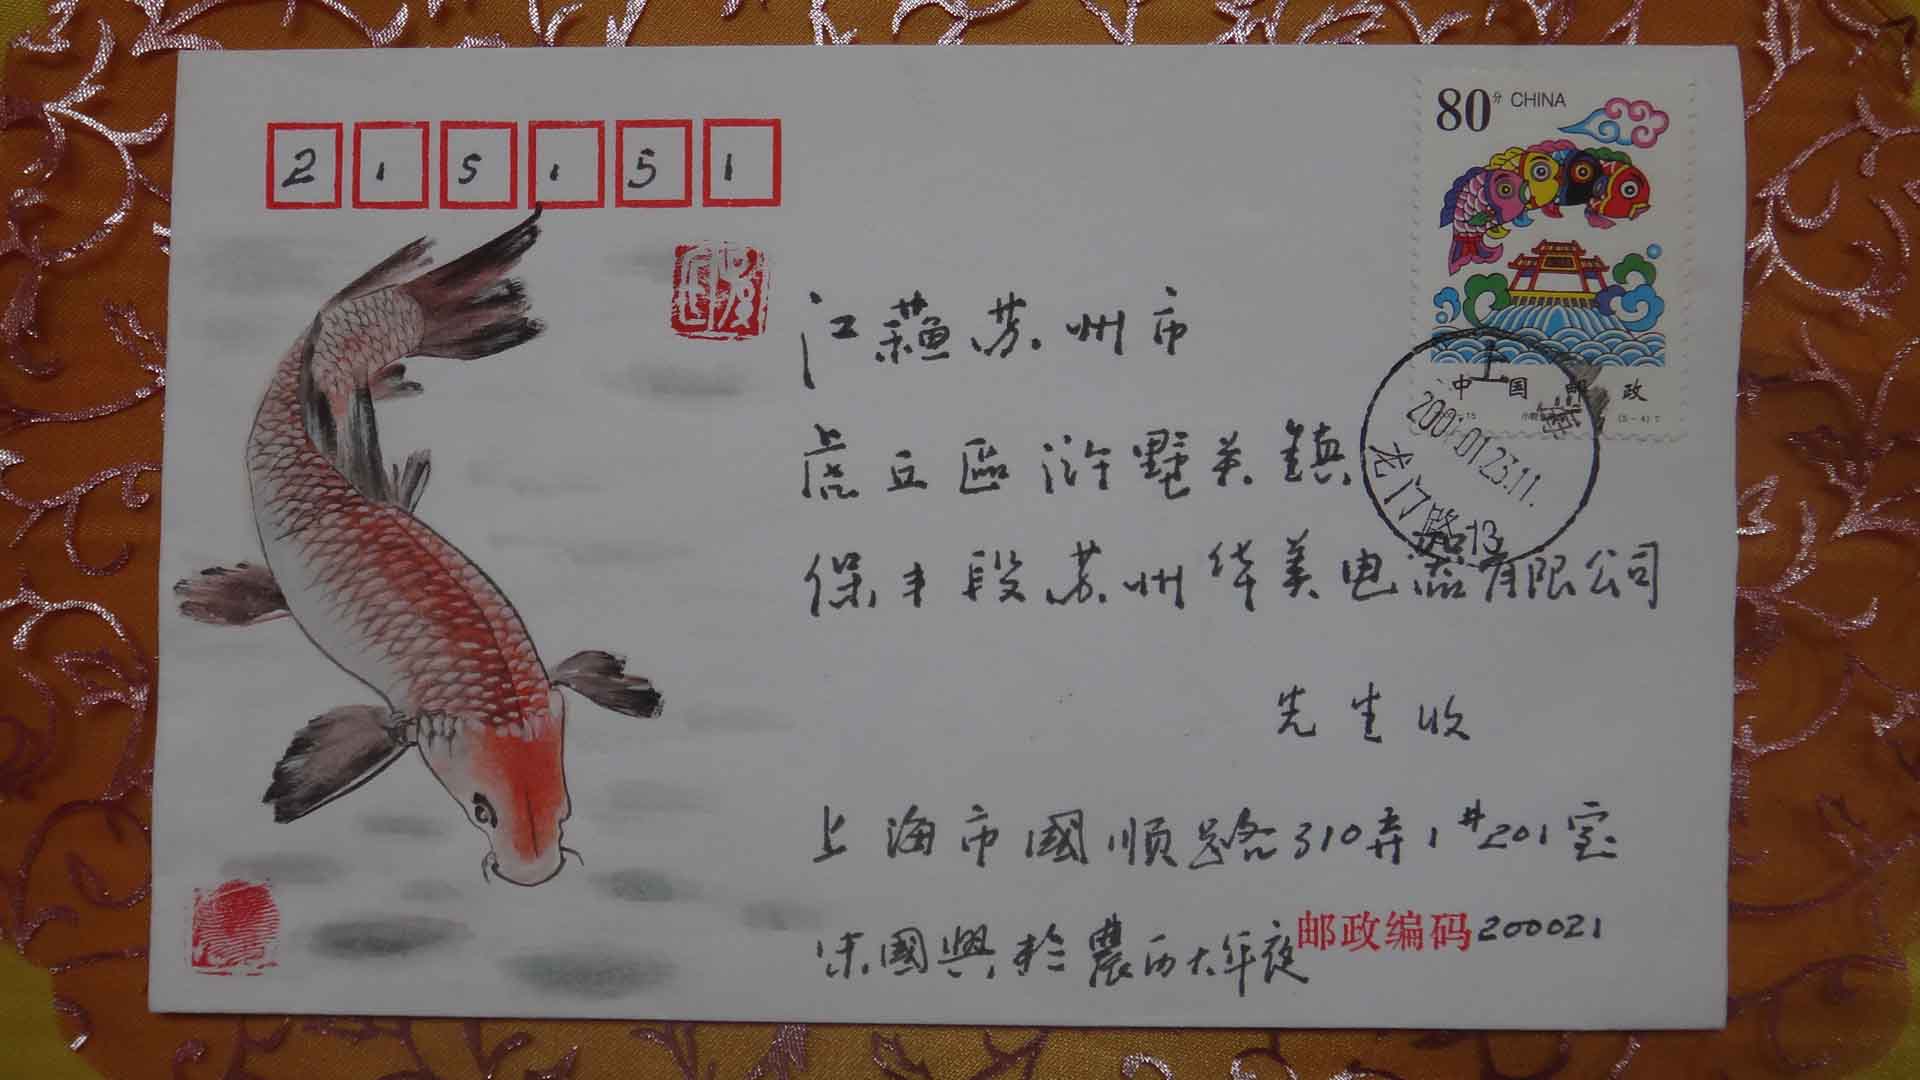 215151
80分 CHINA
中国邮政
(5-4) T
上海
2001.01.23.11.
龙门路13
江蘓苏州市
虎丘區浒墅关鎮
保丰段苏州华美电器有限公司
先生收
上海市國順路310弄1#201室
宋國興於農历大年夜
邮政编码200021